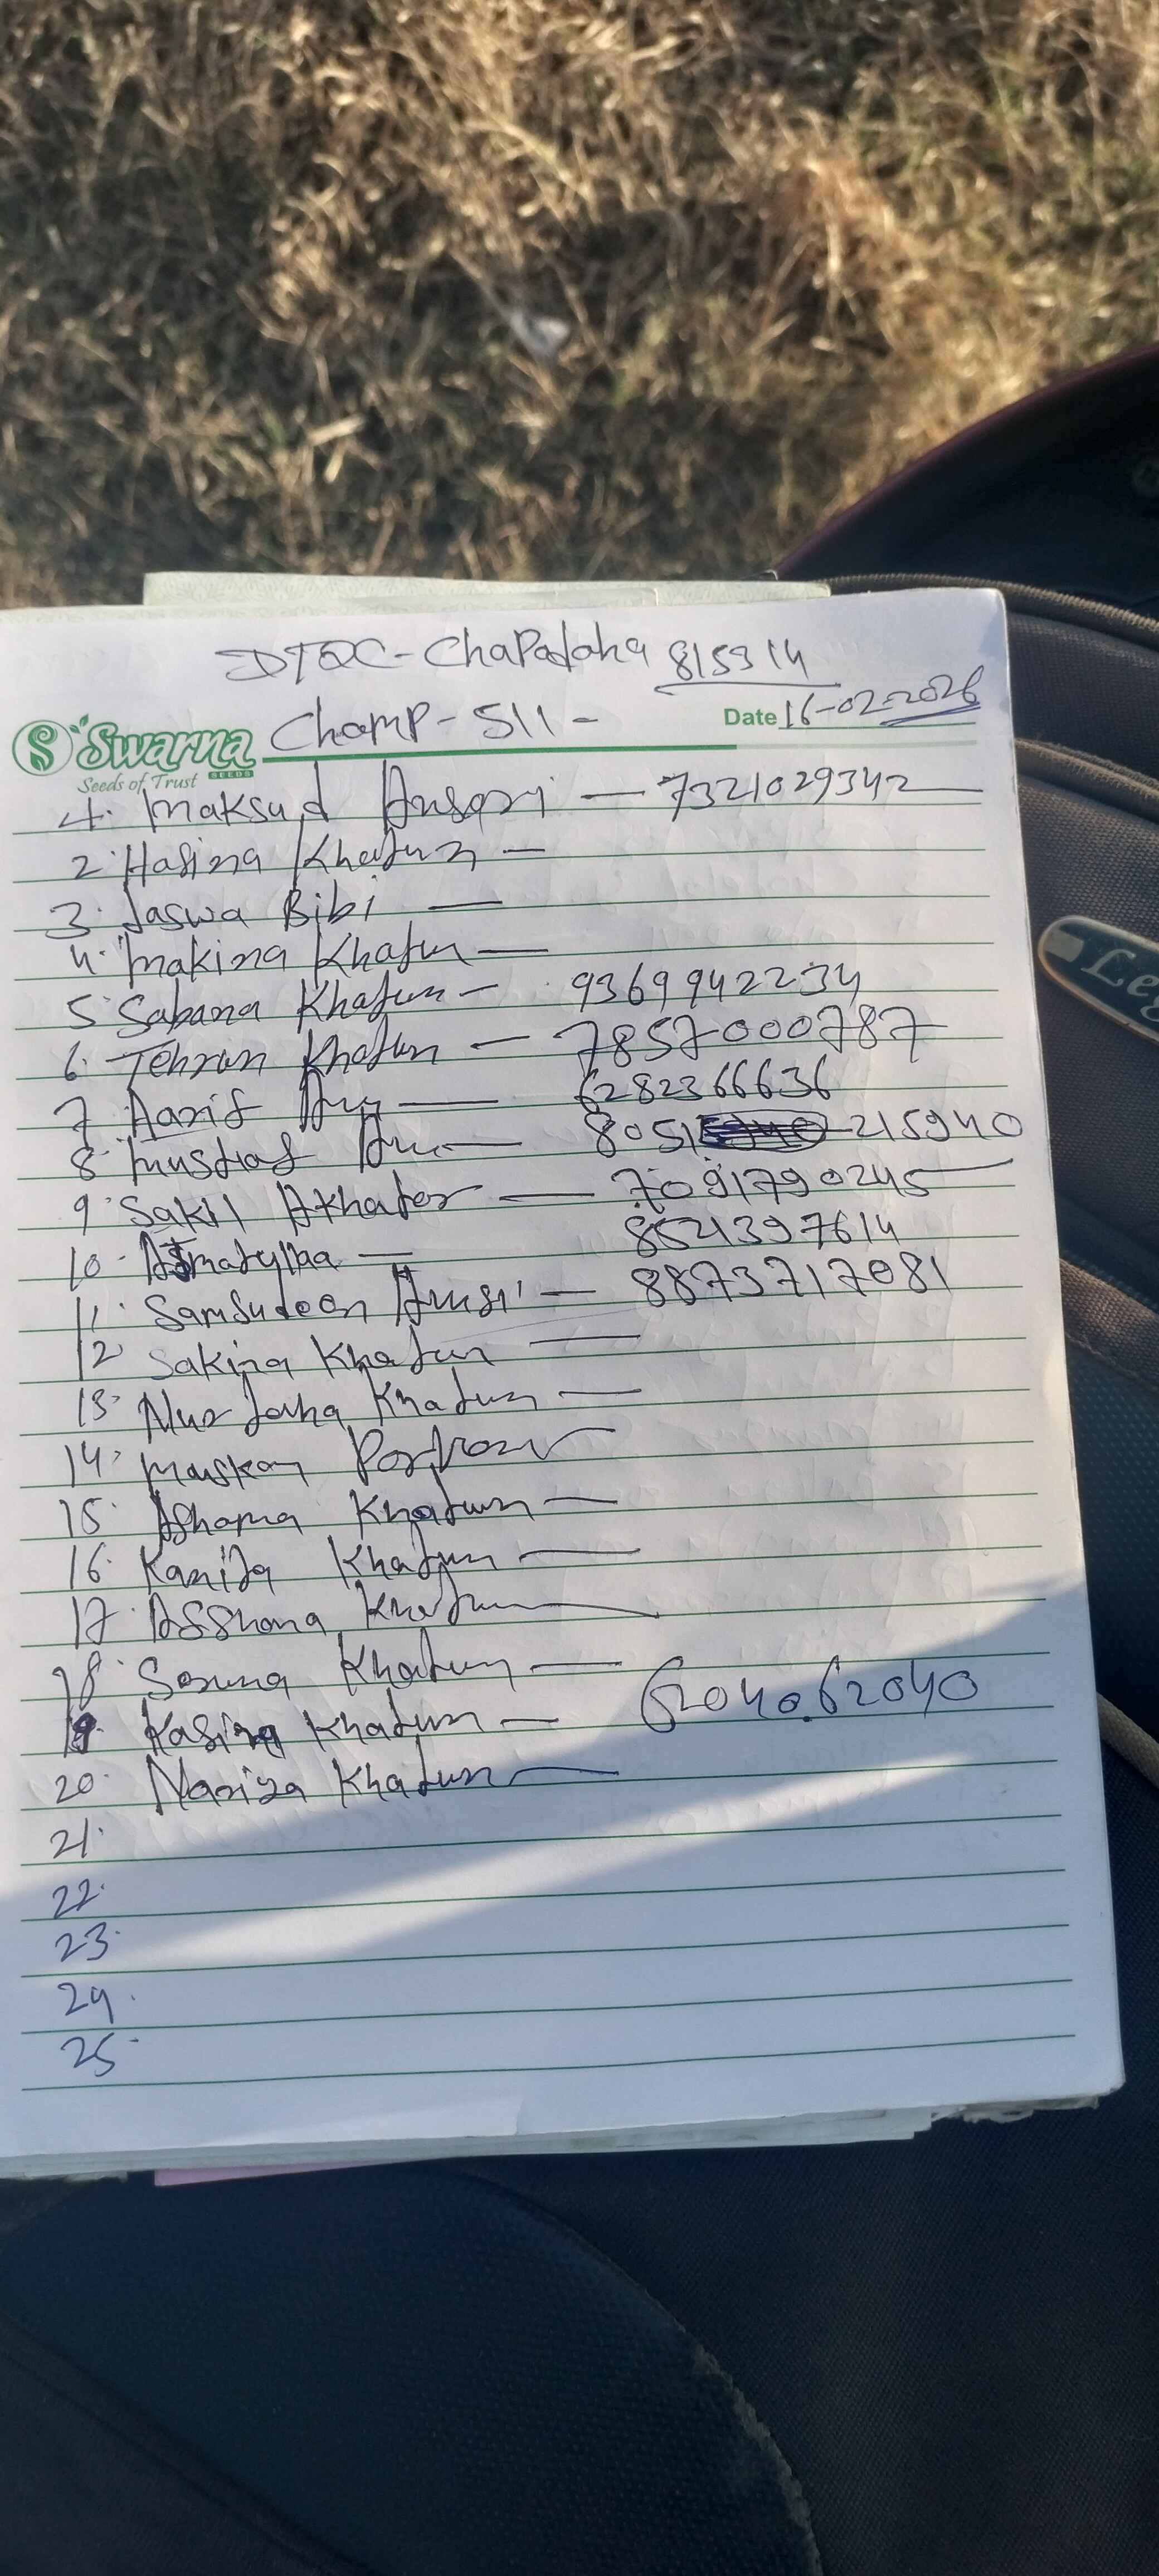 DTQC - Chapadaha 815314
Champ - 511 -
Date 16-02-2026
Swarna
SEEDS
Seeds of Trust
1. Maksud Ansari — 7321029342
2. Hasina Khatun —
3. Jaswa Bibi —
4. Makina Khatun —
5. Sabana Khatun — 9369942234
6. Tehrun Khatun — 7857000787
7. Aarif — 6282366636
8. Mustaf — 8051 215940
9. Sakil Akhater — 7091790245
10. — 8521397614
11. Samsudeen Ansri — 8873717081
12. Sakina Khatun —
13. Nur Jaha Khatun —
14. Muskan
15. Khatun —
16. Kanija Khatun —
17. Afshana Khatun
18. Khatun —
19. Khatun — 6204062040
20. Khatun —
21.
22.
23.
24.
25.
Leg